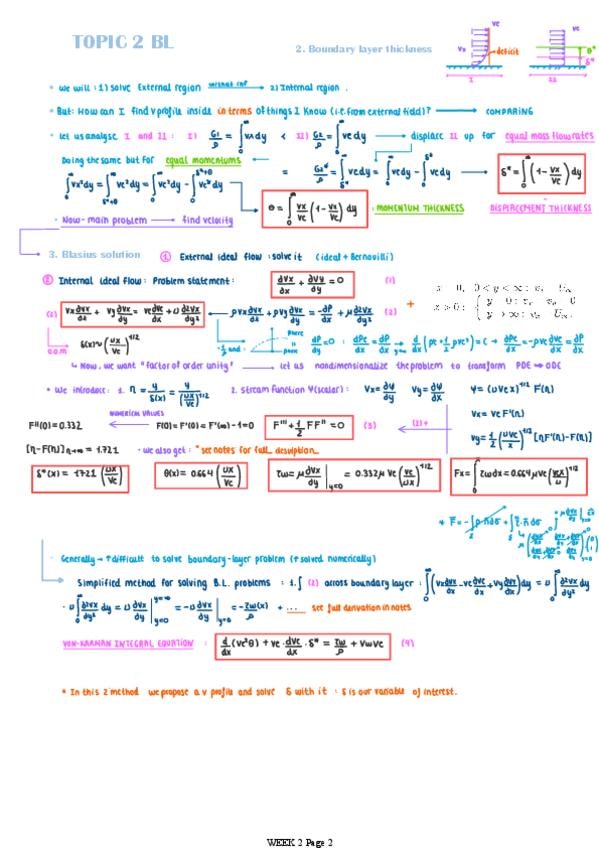 TOPIC 2 BL
2. Boundary layer thickness
Vx ve deficit I
ve θ* δ* II
• We will : 1) solve External region → 2) Internal region .
• But: How can I find v profile inside in terms of things I know (i.e. from external field)? → COMPARING
• let us analyse I and II : I) G1/ρ = ∫₀^∞ vx dy < II) G2/ρ = ∫₀^∞ ve dy → displace II up for equal mass flow rates
Doing the same but for equal momentums ← = G2*/ρ = ∫_δ*^∞ ve dy = ∫₀^∞ ve dy - ∫₀^δ* ve dy → δ* = ∫₀^∞ (1 - vx/ve) dy
∫₀^∞ vx² dy = ∫_δ*+θ^∞ ve² dy = ∫₀^∞ ve² dy - ∫₀^δ*+θ ve² dy → θ = ∫₀^∞ vx/ve (1 - vx/ve) dy : MOMENTUM THICKNESS DISPLACEMENT THICKNESS
• Now - main problem → find velocity
3. Blasius solution ① External ideal flow : solve it (ideal + Bernoulli)
② Internal ideal flow : Problem statement : ∂vx/∂x + ∂vy/∂y = 0 (1)
(2) vx ∂vx/∂x + vy ∂vx/∂y = ve ∂ve/∂x + υ ∂²vx/∂y² ← ρvx ∂vx/∂x + ρvy ∂vx/∂y = -∂P/∂x + μ ∂²vx/∂y² +
O.O.M δ(x) ~ (υx/ve)^1/2
∂P/∂y = 0 : ∂Pe/∂x = ∂P/∂x → d/dx (pe + ½ρve²) = 0 → ∂Pe/∂x = -ρve ∂ve/∂x = ∂P/∂x
↳ Now, we want "factor of order unity" → let us nondimensionalize the problem to transform PDE → ODE
• We introduce : 1. η = y/δ(x) = y/(υx/ve)^1/2 2. Stream function Ψ(scalar) : Vx = ∂Ψ/∂y Vy = ∂Ψ/∂x Ψ = (υvex)^1/2 F(η)
Vx = ve F'(η)
NUMERICAL VALUES
F''(0) = 0.332 ← F(0) = F'(0) = F'(∞) - 1 = 0 F''' + ½ F F'' = 0 (3) ← (2) + vy = ½ (υve/x)^1/2 [ηF'(η) - F(η)]
[η - F(η)]η→∞ = 1.721 • we also get : *see notes for full
δ*(x) = 1.721 (υx/ve) θ(x) = 0.664 (υx/ve) τw = μ ∂vx/∂y |y=0 = 0.332 μ ve (ve/υx)^1/2 Fx = ∫₀^x τw dx = 0.664 μ ve (vex/υ)^1/2
• Generally → ↑ difficult to solve boundary-layer problem (↑ solved numerically)
Simplified method for solving B.L. problems : 1. ∫ (2) across boundary layer : ∫₀^∞ (vx ∂vx/∂x - ve ∂ve/∂x + vy ∂vx/∂y) dy = υ ∫₀^∞ ∂²vx/∂y²
• υ ∫₀^∞ ∂²vx/∂y² dy = υ ∂vx/∂y |y=∞ y=0 = -υ ∂vx/∂y |y=0 = -τw(x)/ρ + .... see full derivation in notes
VON-KARMAN INTEGRAL EQUATION : d/dx (ve²θ) + ve · dve/dx · δ* = τw/ρ + vw ve (4)
* In this 2 method we propose a v profile and solve δ with it : δ is our variable of interest.
WEEK 2 Page 2